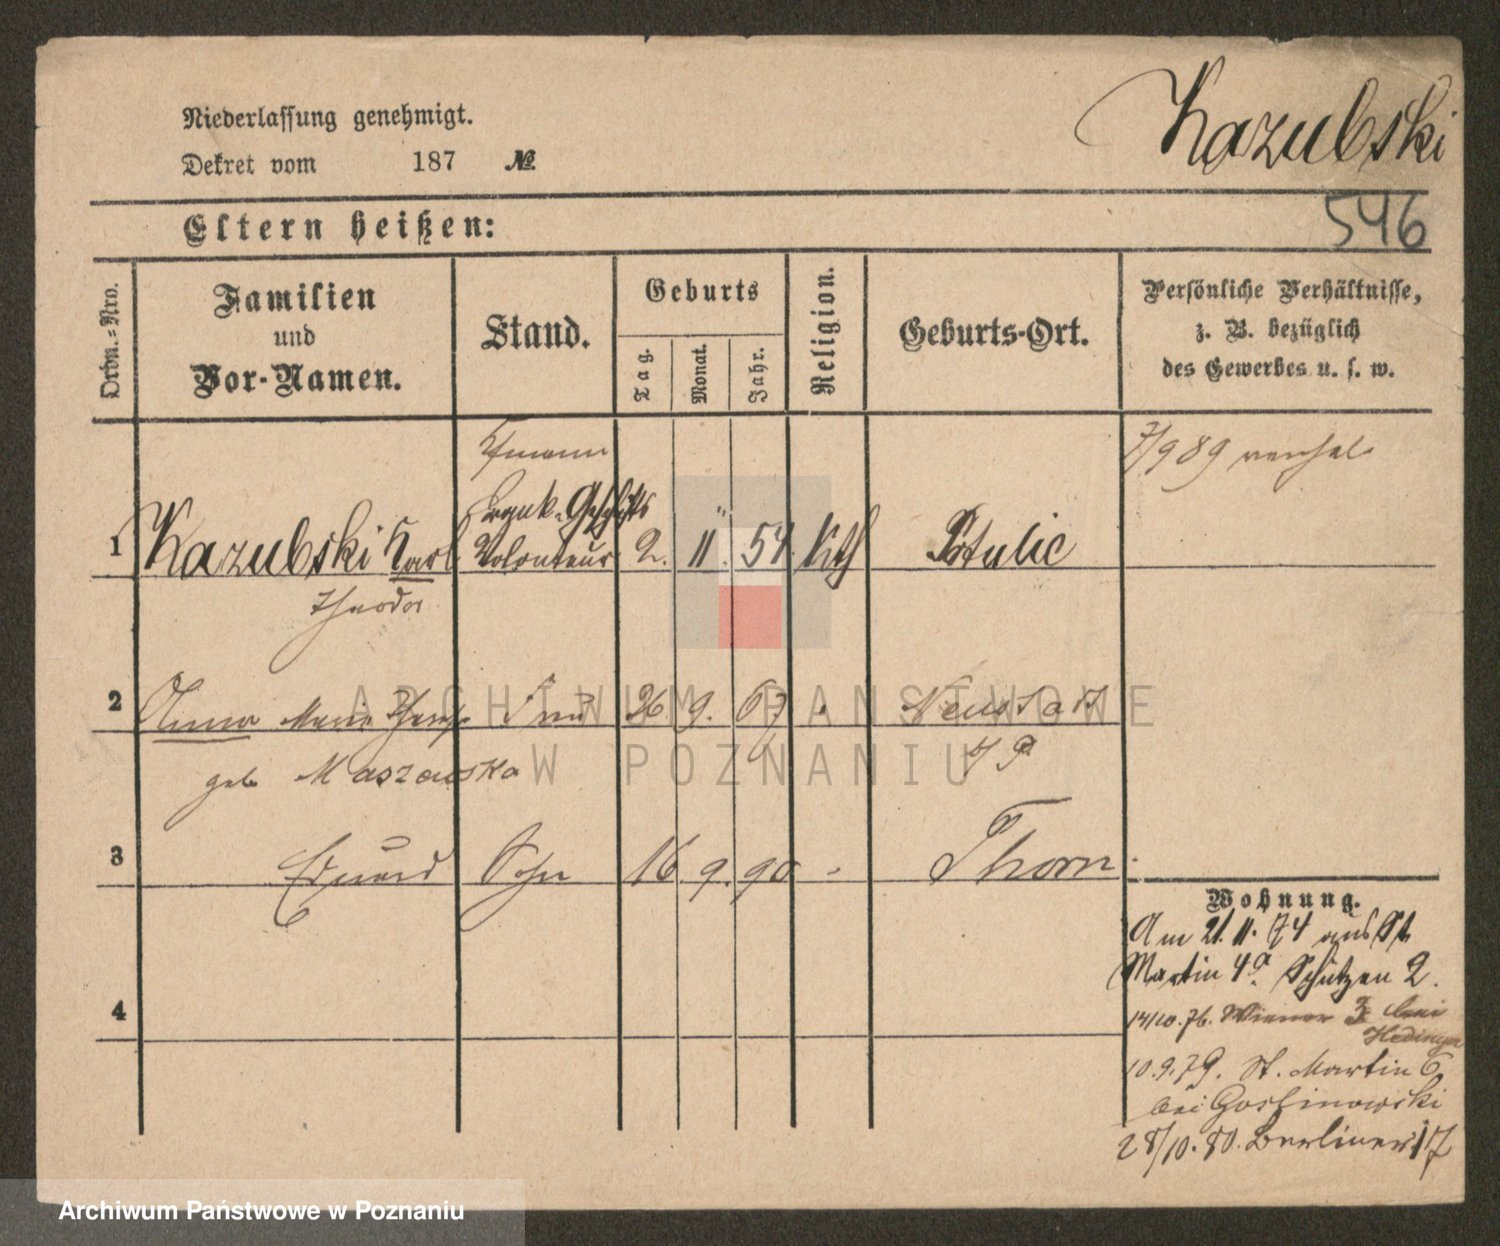 Kazubski
Niederlassung genehmigt.
Dekret vom 187 №
Eltern heißen:
546
Ordn.=Nro.
Familien
und
Vor-Namen.
Stand.
Geburts
Tag.
Monat.
Jahr.
Religion.
Geburts-Ort.
Persönliche Verhältnisse,
z. B. bezüglich
des Gewerbes u. s. w.
7/9 89
1 Kazubski Karl Volonteur 2. 11. 54. Kth Potulic
Theodor
2 Anna Frau 26 9. 67 Neustadt
geb Maszewska
3 Eduard Sohn 16 9. 90 - Thorn
4
Wohnung.
Am 21. 11. 74 aus St.
Martin 4a. Schützen 2.
14/10. 76. Wiener 3 bei
10. 9. 79. St. Martin 6
bei Goslinowski
28/10. 80. Berliner 17
ARCHIWUM PAŃSTWOWE
W POZNANIU
Archiwum Państwowe w Poznaniu